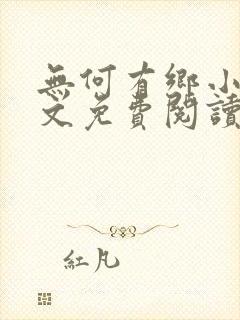 無何有鄉小
文免費閱讀
紅凡